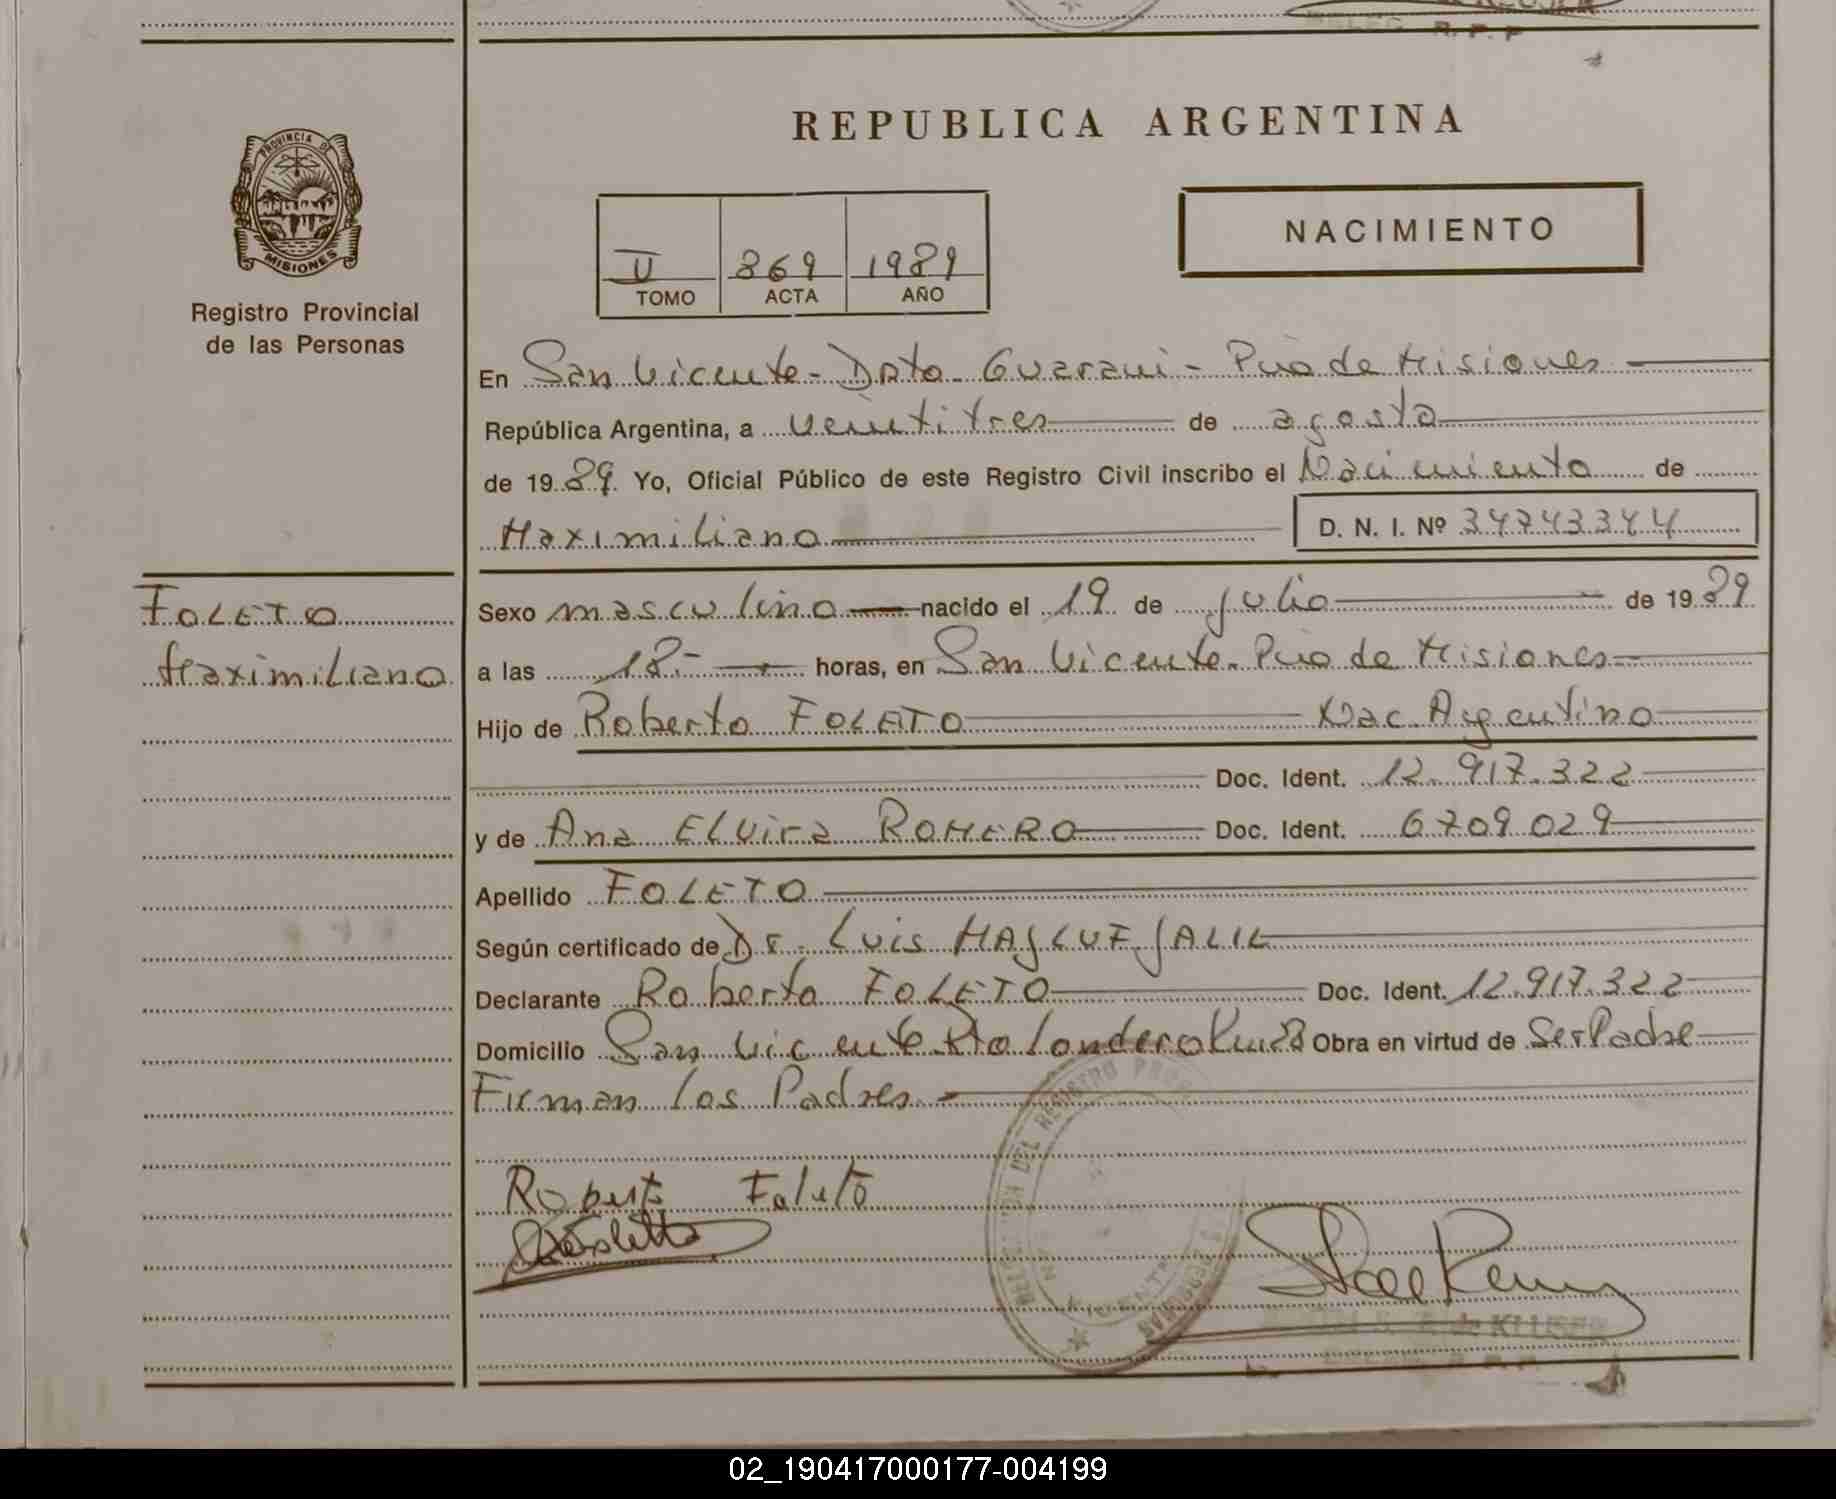 R. P. P
REPUBLICA ARGENTINA
PROVINCIA DE
MISIONES
Registro Provincial
de las Personas
NACIMIENTO
II 869 1989
TOMO ACTA AÑO
En San Vicente - Dpto. Guarani - Pcia de Misiones
República Argentina, a veintitres de agosto
de 1989. Yo, Oficial Público de este Registro Civil inscribo el Nacimiento de
Maximiliano D. N. I. Nº 34743344
FOLETO
Maximiliano
Sexo masculino nacido el 19 de julio de 1989
a las 18.- horas, en San Vicente. Pcia de Misiones
Hijo de Roberto FOLETO Nac. Argentino
Doc. Ident. 12.917.322
y de Ana ELvira ROMERO Doc. Ident. 6709029
Apellido FOLETO
Según certificado de Dr. Luis JALIL
Declarante Roberto FOLETO Doc. Ident. 12.917.322
Domicilio San Vicente Obra en virtud de Ser Padre
Firman los Padres
Roberto Foleto
DEL REGISTRO
de KLUSER